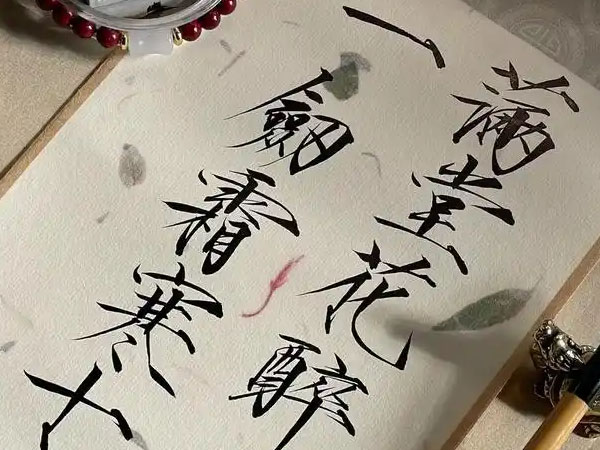 满堂花醉
一劍霜寒十